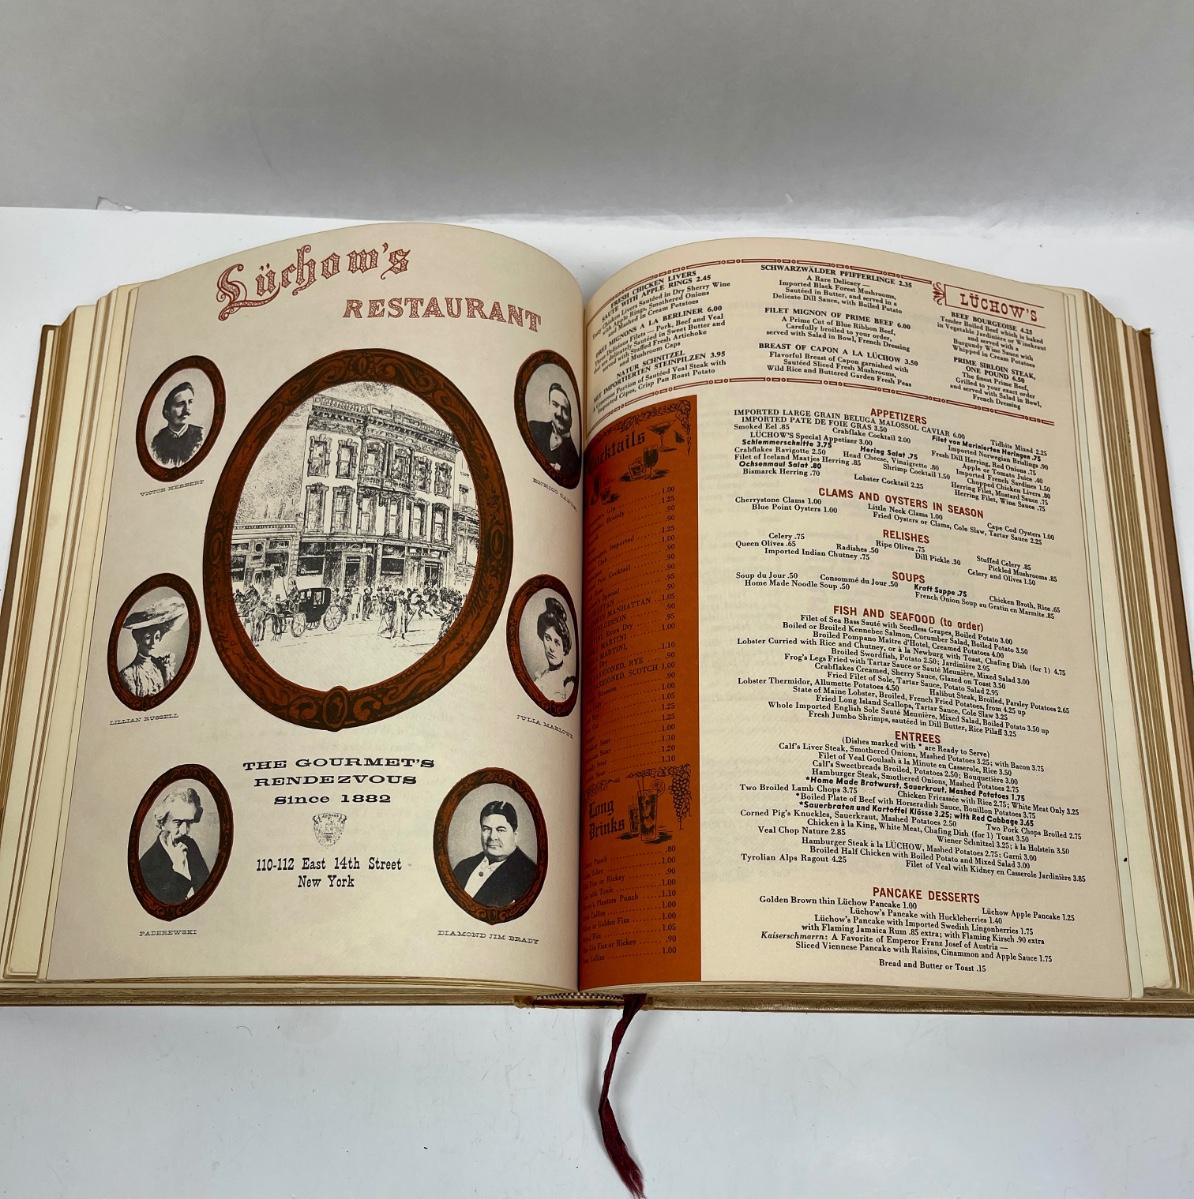 Lüchow's
RESTAURANT
VICTOR HERBERT
LILLIAN RUSSELL
JULIA MARLOWE
THE GOURMET'S
RENDEZVOUS
Since 1882
110-112 East 14th Street
New York
PADEREWSKI
DIAMOND JIM BRADY
FRESH CHICKEN LIVERS
SAUTÉ WITH APPLE RINGS 2.45
Livers Sautéed in Dry Sherry Wine
Rings, Smothered Onions
Cream Potatoes
MIGNONS A LA BERLINER 6.00
Pork, Beef and Veal
Sautéed in Sweet Butter and
Stuffed Fresh Artichoke
and Mushroom Caps
NATUR SCHNITZEL
IMPORTIERTEN STEINPILZEN 3.95
Portion of Sautéed Veal Steak with
Cépes, Crisp Pan Roast Potato
SCHWARZWÄLDER PFIFFERLINGE 2.35
A Rare Delicacy —
Imported Black Forest Mushrooms,
Sautéed in Butter, and served in a
Delicate Dill Sauce, with Boiled Potato
FILET MIGNON OF PRIME BEEF 6.00
A Prime Cut of Blue Ribbon Beef,
Carefully broiled to your order,
served with Salad in Bowl, French Dressing
BREAST OF CAPON A LA LÜCHOW 3.50
Flavorful Breast of Capon garnished with
Sautéed Sliced Fresh Mushrooms,
Wild Rice and Buttered Garden Fresh Peas
LÜCHOW'S
BEEF BOURGEOISE 4.25
Tender Boiled Beef which is baked
in Vegetable Jardinière or Winekraut
and served with a
Burgundy Wine Sauce with
Whipped in Cream Potatoes
PRIME SIRLOIN STEAK,
ONE POUND 6.50
The finest Prime Beef,
Grilled to your exact order
and served with Salad in Bowl,
French Dressing
APPETIZERS
IMPORTED LARGE GRAIN BELUGA MALOSSOL CAVIAR 6.00
IMPORTED PATE DE FOIE GRAS 3.50
Tidbits Mixed 2.25
Smoked Eel .85
Crabflake Cocktail 2.00
Filet von Marinierten Heringen .75
LÜCHOW'S Special Appetizer 3.00
Imported Norwegian Brislings .90
Schlemmerschnitte 3.75
Hering Salat .75
Fresh Dill Herring, Red Onions .75
Crabflakes Ravigotte 2.50
Head Cheese, Vinaigrette .80
Apple or Tomato Juice .40
Filet of Iceland Maatjes Herring .85
Shrimp Cocktail 1.50
Imported French Sardines 1.50
Ochsenmaul Salat .80
Chopped Chicken Livers .80
Bismarck Herring .70
Lobster Cocktail 2.25
Herring Filet, Mustard Sauce .75
Herring Filet, Wine Sauce .75
CLAMS AND OYSTERS IN SEASON
Cherrystone Clams 1.00
Little Neck Clams 1.00
Cape Cod Oysters 1.00
Blue Point Oysters 1.00
Fried Oysters or Clams, Cole Slaw, Tartar Sauce 2.25
RELISHES
Celery .75
Ripe Olives .75
Stuffed Celery .85
Queen Olives .65
Radishes .50
Dill Pickle .30
Pickled Mushrooms .85
Imported Indian Chutney .75
Celery and Olives 1.50
SOUPS
Soup du Jour .50
Consommé du Jour .50
Kraft Suppe .75
Chicken Broth, Rice .65
Home Made Noodle Soup .50
French Onion Soup au Gratin en Marmite .85
FISH AND SEAFOOD (to order)
Filet of Sea Bass Sauté with Seedless Grapes, Boiled Potato 3.00
Boiled or Broiled Kennebec Salmon, Cucumber Salad, Boiled Potato 3.50
Broiled Pompano Maître d'Hotel, Creamed Potatoes 4.00
Lobster Curried with Rice and Chutney, or à la Newburg with Toast, Chafing Dish (for 1) 4.75
Broiled Swordfish, Potato 2.50; Jardinière 2.95
Frog's Legs Fried with Tartar Sauce or Sauté Meunière, Mixed Salad 3.00
Crabflakes Creamed, Sherry Sauce, Glazed on Toast 3.50
Fried Filet of Sole, Tartar Sauce, Potato Salad 2.95
Lobster Thermidor, Allumette Potatoes 4.50
Halibut Steak, Broiled, Parsley Potatoes 2.65
State of Maine Lobster, Broiled, French Fried Potatoes, from 4.25 up
Fried Long Island Scallops, Tartar Sauce, Cole Slaw 3.25
Whole Imported English Sole Sauté Meunière, Mixed Salad, Boiled Potato 3.50 up
Fresh Jumbo Shrimps, sautéed in Dill Butter, Rice Pilaff 3.25
ENTREES
(Dishes marked with * are Ready to Serve)
Calf's Liver Steak, Smothered Onions, Mashed Potatoes 3.25; with Bacon 3.75
Filet of Veal Goulash à la Minute en Casserole, Rice 3.50
Calf's Sweetbreads Broiled, Potatoes 2.50; Bouquetière 3.00
Hamburger Steak, Smothered Onions, Mashed Potatoes 2.75
*Home Made Bratwurst, Sauerkraut, Mashed Potatoes 1.75
Two Broiled Lamb Chops 3.75
Chicken Fricassée with Rice 2.75; White Meat Only 3.25
*Boiled Plate of Beef with Horseradish Sauce, Bouillon Potatoes 3.75
*Sauerbraten und Kartoffel Klösse 3.25; with Red Cabbage 3.65
Corned Pig's Knuckles, Sauerkraut, Mashed Potatoes 2.50
Two Pork Chops Broiled 2.75
Chicken à la King, White Meat, Chafing Dish (for 1) Toast 3.50
Veal Chop Nature 2.85
Wiener Schnitzel 3.25; à la Holstein 3.50
Hamburger Steak à la LÜCHOW, Mashed Potatoes 2.75; Garni 3.00
Broiled Half Chicken with Boiled Potato and Mixed Salad 3.00
Tyrolian Alps Ragout 4.25
Filet of Veal with Kidney en Casserole Jardinière 3.85
PANCAKE DESSERTS
Golden Brown thin Lüchow Pancake 1.00
Lüchow Apple Pancake 1.25
Lüchow's Pancake with Huckleberries 1.40
Lüchow's Pancake with Imported Swedish Lingonberries 1.75
with Flaming Jamaica Rum .85 extra; with Flaming Kirsch .90 extra
Kaiserschmarrn: A Favorite of Emperor Franz Josef of Austria —
Sliced Viennese Pancake with Raisins, Cinammon and Apple Sauce 1.75
Bread and Butter or Toast .15
Long
Drinks